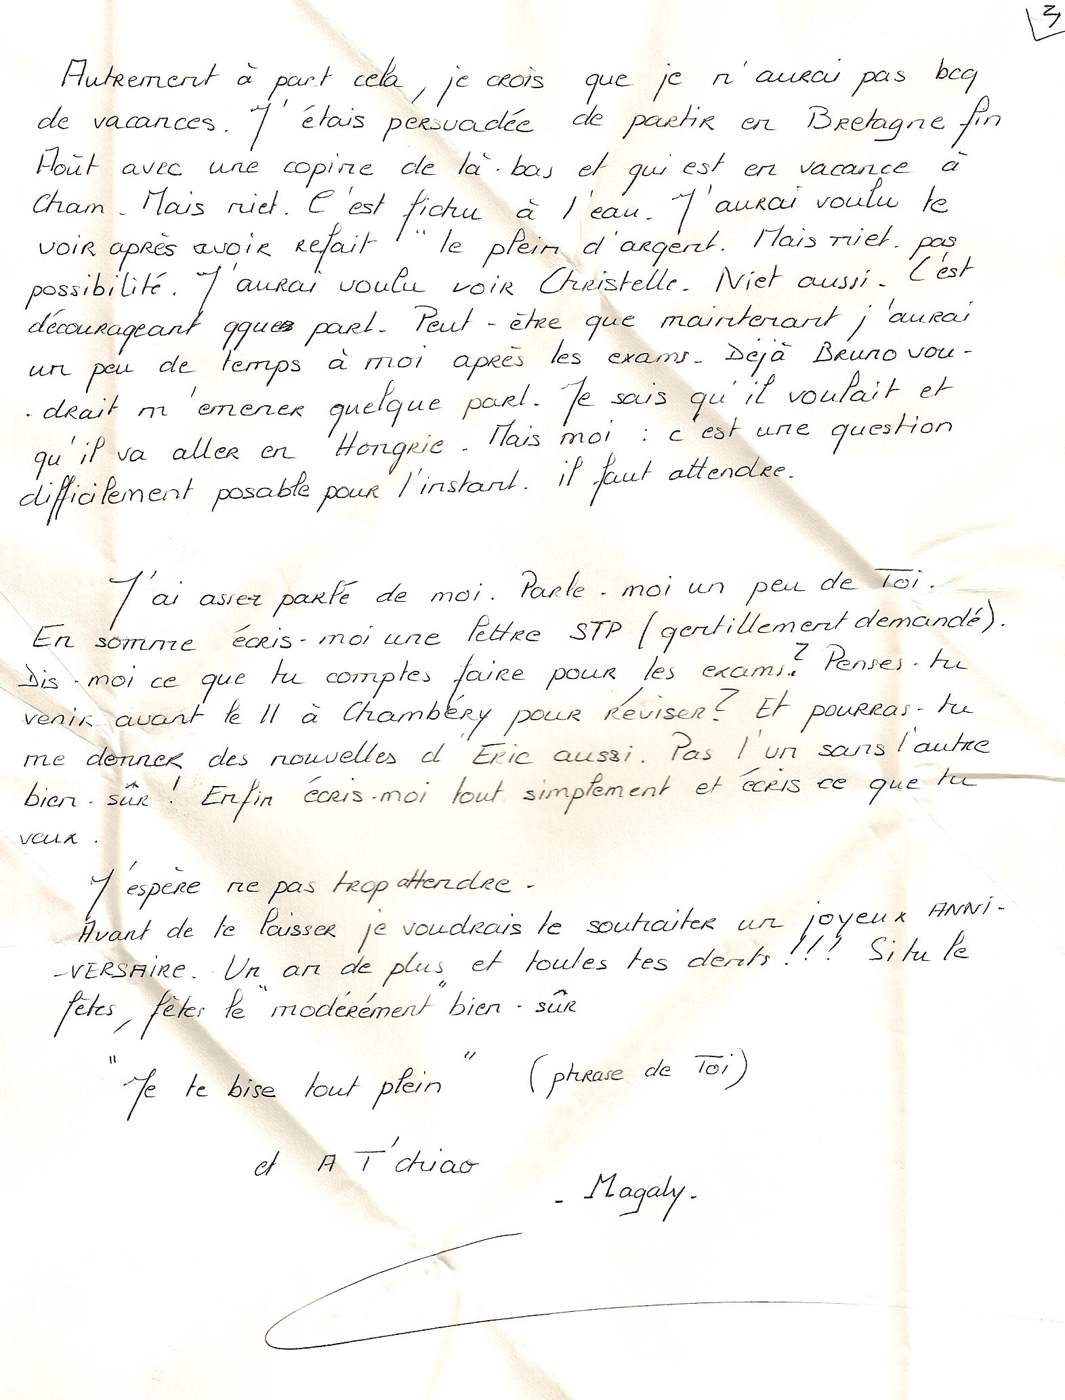 3
Autrement à part cela, je crois que je n'aurai pas bcq
de vacances. J'étais persuadée de partir en Bretagne fin
Août avec une copine de là-bas et qui est en vacance à
Cham. Mais niet. C'est fichu à l'eau. J'aurai voulu te
voir après avoir refait " le plein d'argent. Mais niet. pas
possibilité. J'aurai voulu voir Christelle. Niet aussi. C'est
décourageant qques part. Peut-être que maintenant j'aurai
un peu de temps à moi après les exams. Déjà Bruno vou-
-drait m'emener quelque part. Je sais qu'il voulait et
qu'il va aller en Hongrie. Mais moi : c'est une question
difficilement posable pour l'instant. il faut attendre.
J'ai assez parlé de moi. Parle-moi un peu de Toi.
En somme écris-moi une lettre STP (gentillement demandé).
Dis-moi ce que tu comptes faire pour les exams? Penses-tu
venir avant le 11 à Chambéry pour réviser? Et pourras-tu
me donner des nouvelles d'Eric aussi. Pas l'un sans l'autre
bien-sûr! Enfin écris-moi tout simplement et écris ce que tu
veux.
J'espère ne pas trop attendre.
Avant de te laisser je voudrais te souhaiter un joyeux ANNI-
-VERSAIRE. Un an de plus et toutes tes dents!!! Si tu le
fêtes, fêtes le "modérément" bien-sûr
"Je te bise tout plein" (phrase de Toi)
et A T'chiao
- Magaly.